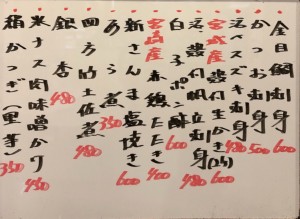 金目鯛刺身 600
かつお刺身 500
活〆スズキ刺身 480
宮城産 活〆殻付生かき(1ヶ) 600
活〆殻付帆立刺身 480
白子ポン酢 600
宮崎産 赤鶏たたき 400
新さんま塩焼き 600
あら煮 350
四方竹土佐煮 480
銀杏 480
米ナス肉味噌かけ 450
絹かつぎ(里芋) 350